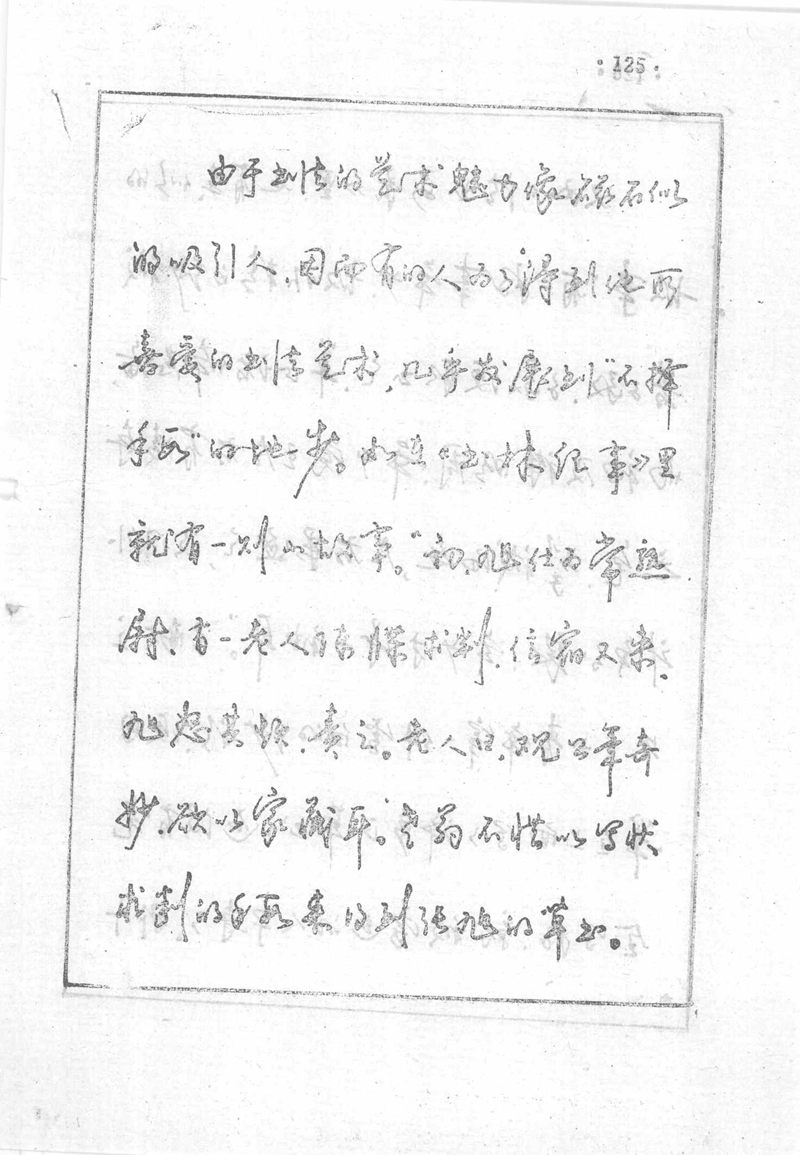 :125·
由于书法的艺术魅力像磁石似
的吸引人，因而有的人为了得到他所
喜爱的书法艺术，几乎发展到“不择
手段”的地步。如在《书林纪事》里
就有一则小故事。“初，旭仕为常熟
尉，有一老人陈牒求判，信宿又来，
旭怒其烦，责之。老人曰，观公笔奇
妙，欲以家藏耳。”老翁不惜以写状
求判的手段来得到张旭的草书。